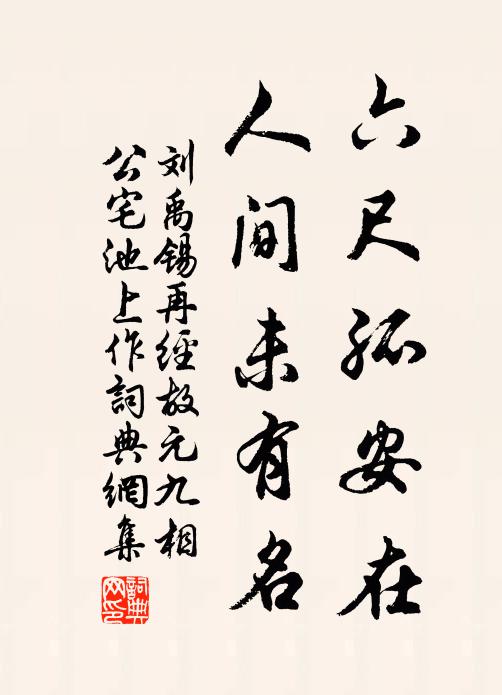 六尺孤安在
人间未有名
刘禹锡再經故元九相
公宅池上作詞典網集
詞典網印